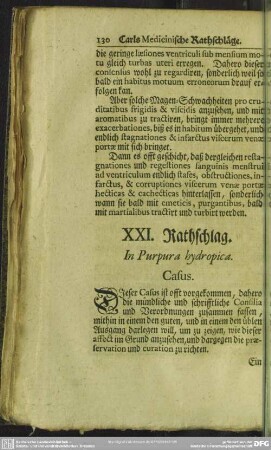 130 Carls Medicinische Rathschläge.
die geringe læsiones ventriculi sub mensium mo-
tu gleich turbas uteri erregen. Dahero dieser
consensus wohl zu regardiren, sonderlich weil so
bald ein habitus motuum erroneorum drauf er-
folgen kan.
Aber solche Magen-Schwachheiten pro cru-
ditatibus frigidis & viscidis anzusehen, und mit
aromatibus zu tractiren, bringt immer mehrere
exacerbationes, biß es in habitum übergehet, und
endlich stagnationes & infarctus viscerum venæ
portæ mit sich bringet.
Dann es offt geschicht, daß dergleichen resta-
gnationes und regestiones sanguinis menstrui
ad ventriculum endlich stases, obstructiones, in-
farctus, & corruptiones viscerum venæ portæ
hecticas & cachecticas hinterlassen, sonderlich
wann sie bald mit emeticis, purgantibus, bald
mit martialibus tractirt und turbirt werden.
XXI. Rathschlag.
In Purpura hydropica.
Casus.
Dieser Casus ist offt vorgekommen, dahero
die mündliche und schrifftliche Consilia
und Verordnungen zusammen fassen,
mithin in einem den guten, und in einem den üblen
Ausgang darlegen will, um zu zeigen, wie dieser
affect im Grund anzusehen, und dargegen die præ-
servation und curation zu richten.
Ein